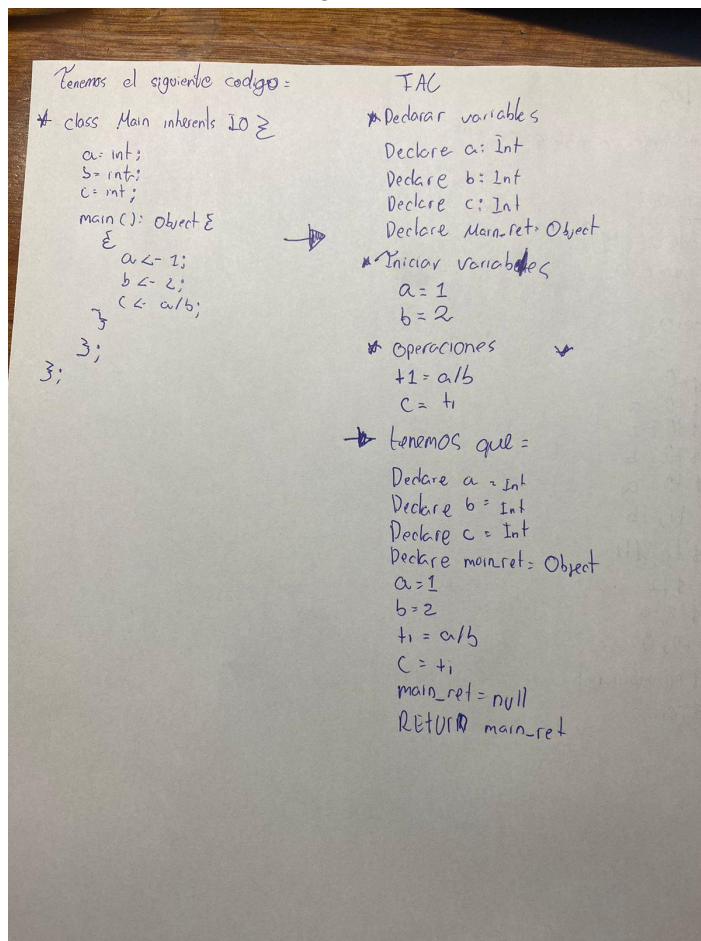 Tenemos el siguiente codigo =
* class Main inherents IO {
a = int ;
b = int ;
c = int ;
main ( ) : Object {
{
a <- 1;
b <- 2;
c <- a/b;
}
};
};
TAC
* Declarar variables
Declare a: Int
Declare b: Int
Declare c: Int
Declare Main_ret: Object
* Iniciar variables
a = 1
b = 2
* operaciones
t1 = a/b
c = t1
→ tenemos que =
Declare a = Int
Declare b = Int
Declare c = Int
Declare main_ret = Object
a = 1
b = 2
t1 = a/b
c = t1
main_ret = null
RETURN main_ret